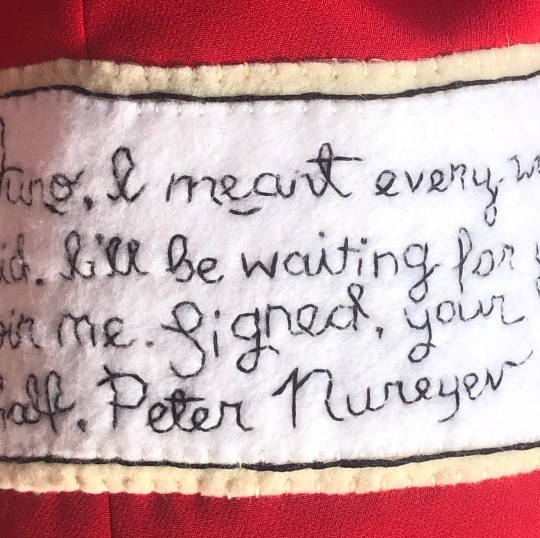 I meant every
I'll be waiting for
me. Signed, your
half, Peter Nureyev